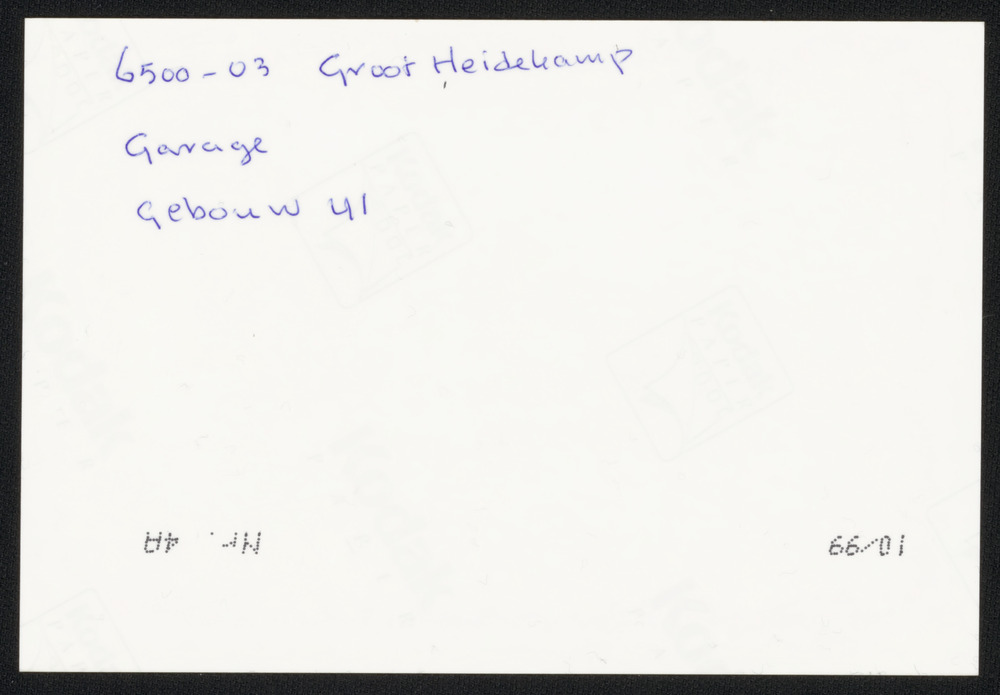 6500-03 Groot Heidekamp
Garage
Gebouw 41
Nr. 4A
10/99